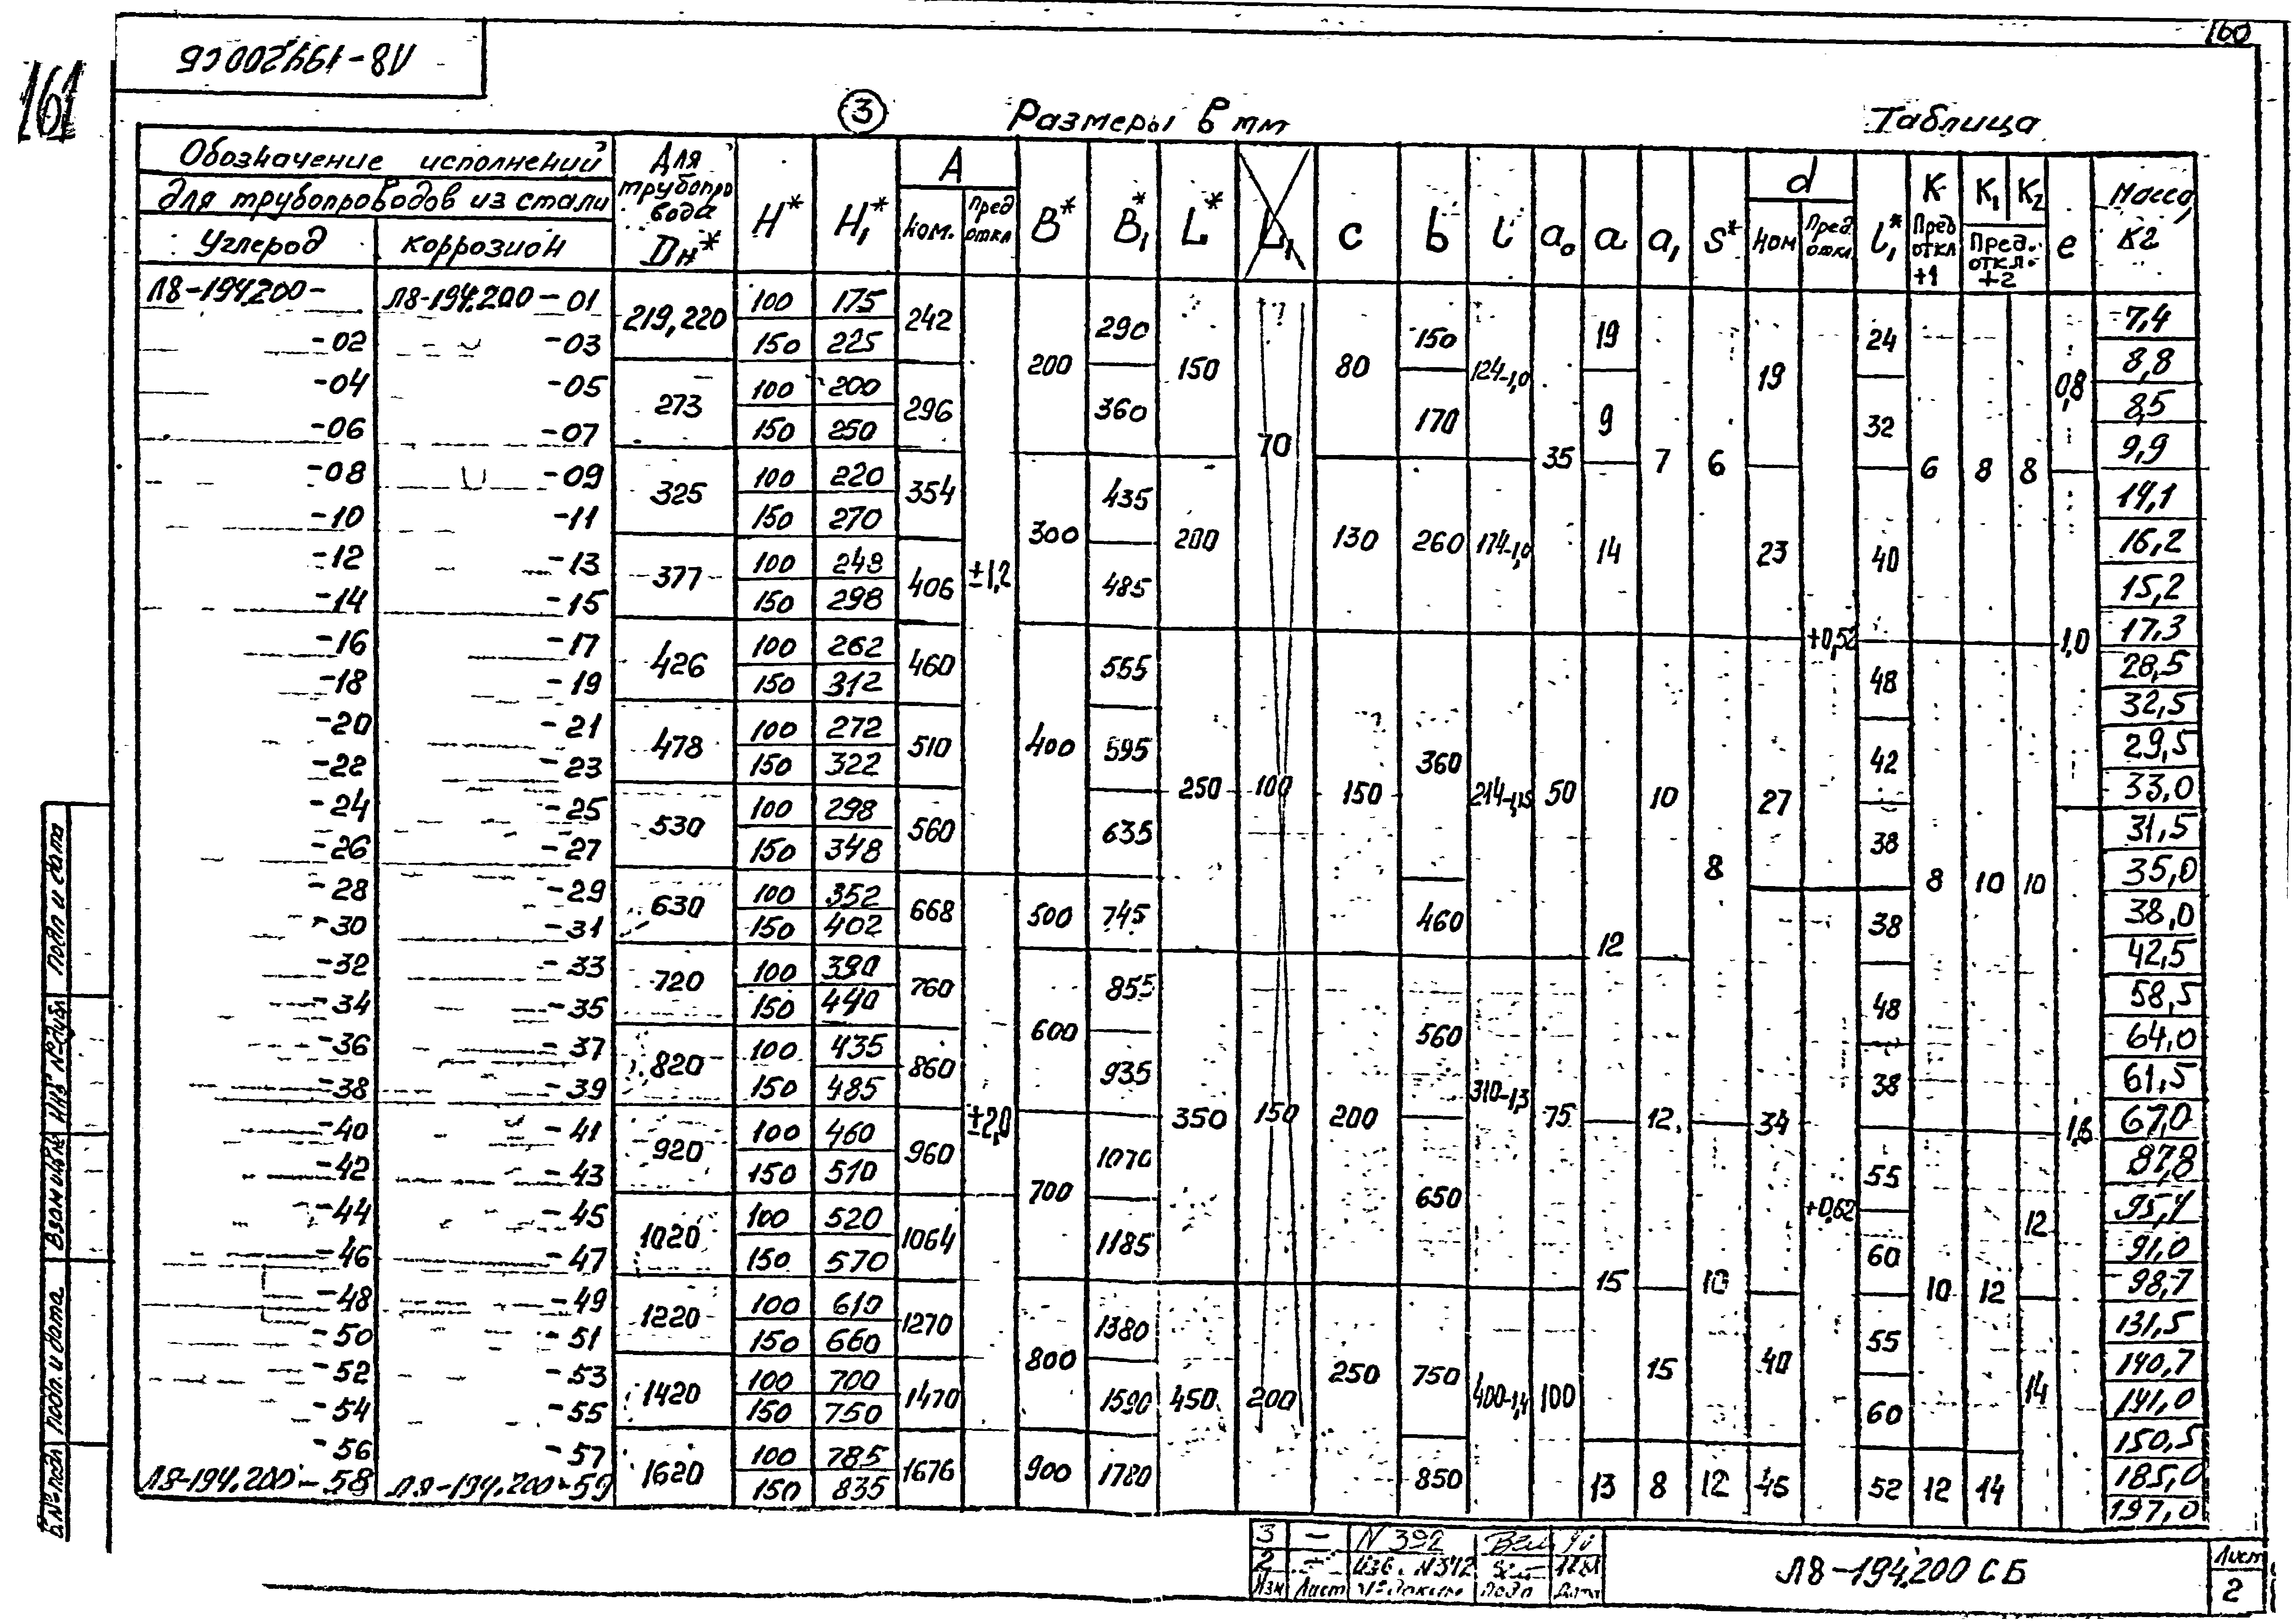 160
Л8-194.200 СБ
161
3
Размеры в мм
Таблица
Обозначение исполнений
для трубопроводов из стали
Углерод
коррозион
Для трубопровода Dн*
H*
H1*
A
ном.
пред откл
B*
B1*
L*
L1
c
b
l
a0
a
a1
S*
d
ном
Пред откл
l1*
K
Пред откл +1
K1
K2
Пред. откл. +2
e
Масса, кг
Л8-194.200- Л8-194.200-01 219,220 100 175 242 ±1,2 200 290 150 70 80 150 124-1,0 35 19 7 6 19 +0,52 24 6 8 8 0,8 7,4
-02 -03 150 225 8,8
-04 -05 273 100 200 296 360 170 9 32 8,5
-06 -07 150 250 9,9
-08 -09 325 100 220 354 300 435 200 130 260 174-1,0 14 23 40 1,0 14,1
-10 -11 150 270 16,2
-12 -13 377 100 248 406 485 15,2
-14 -15 150 298 17,3
-16 -17 426 100 262 460 400 555 250 100 150 360 214-1,15 50 12 10 8 27 48 8 10 10 28,5
-18 -19 150 312 32,5
-20 -21 478 100 272 510 595 42 29,5
-22 -23 150 322 33,0
-24 -25 530 100 298 560 635 38 1,6 31,5
-26 -27 150 348 35,0
-28 -29 630 100 352 668 ±2,0 500 745 460 34 +0,62 38 38,0
-30 -31 150 402 42,5
-32 -33 720 100 390 760 600 855 350 150 200 560 310-1,3 75 12 48 58,5
-34 -35 150 440 64,0
-36 -37 820 100 435 860 935 38 61,5
-38 -39 150 485 67,0
-40 -41 920 100 460 960 700 1070 650 15 10 55 10 12 12 87,8
-42 -43 150 510 95,4
-44 -45 1020 100 520 1064 1185 60 91,0
-46 -47 150 570 98,7
-48 -49 1220 100 610 1270 800 1380 450 200 250 750 400-1,4 100 15 40 55 14 131,5
-50 -51 150 660 140,7
-52 -53 1420 100 700 1470 1590 60 141,0
-54 -55 150 750 150,5
-56 -57 1620 100 785 1676 900 1780 850 13 8 12 45 52 12 14 185,0
Л8-194.200-58 Л8-194.200-59 150 835 197,0
подп и дата
Инв № дубл
Взам инв №
подп. и дата
№ подл
3 — N 392
2 Изв. N342
Изм Лист № докум подп Дата
Л8-194.200 СБ
Лист
2